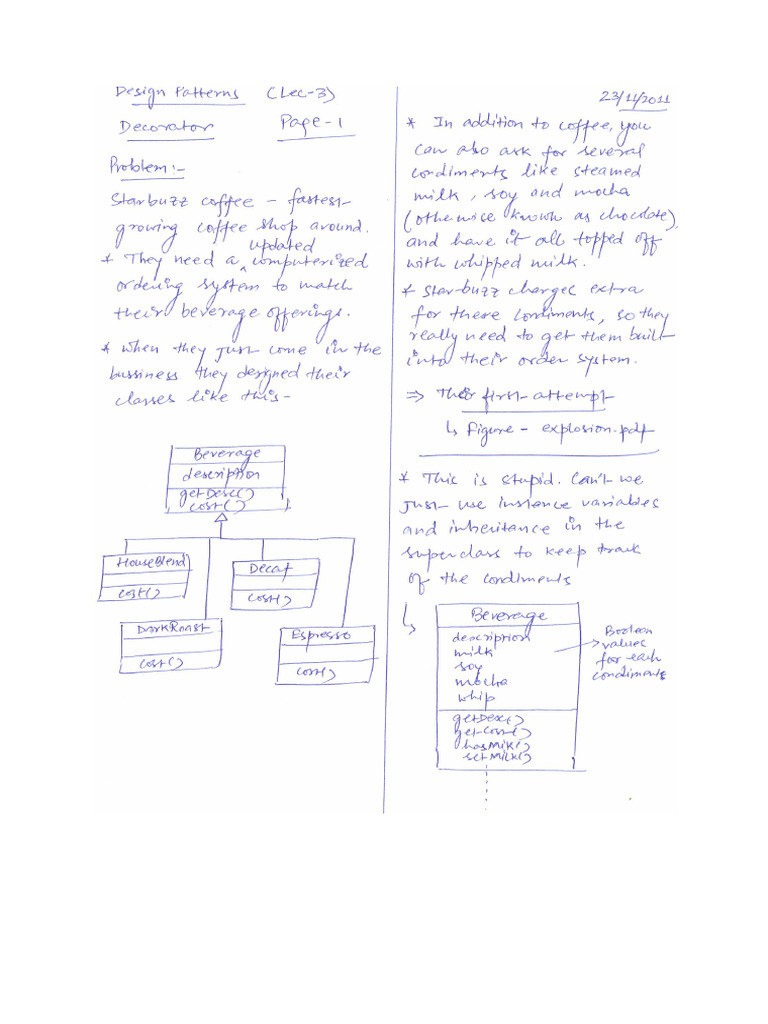 Design Patterns (Lec-3)
Decorator Page-1
Problem:-
Starbuzz coffee - fastest
growing coffee shop around.
updated
* They need a computerized
ordering system to match
their beverage offerings.
* When they just come in the
bussiness they designed their
classes like this-
Beverage
description
getDesc()
cost()
HouseBlend
cost()
Decaf
cost()
DarkRoast
cost()
Espresso
cost()
23/11/2011
* In addition to coffee, you
can also ask for several
condiments like steamed
milk, soy and mocha
(otherwise known as chocolate),
and have it all topped off
with whipped milk.
* Starbuzz charges extra
for these condiments, so they
really need to get them built
into their order system.
⇒ Their first attempt
↳ Figure - explosion.pdf
* This is stupid. Can't we
just use instance variables
and inheritance in the
superclass to keep track
of the condiments
Beverage
description
milk
soy
mocha
whip
getDesc()
getCost()
hasMilk()
setMilk()
Boolean
values
for each
condiments